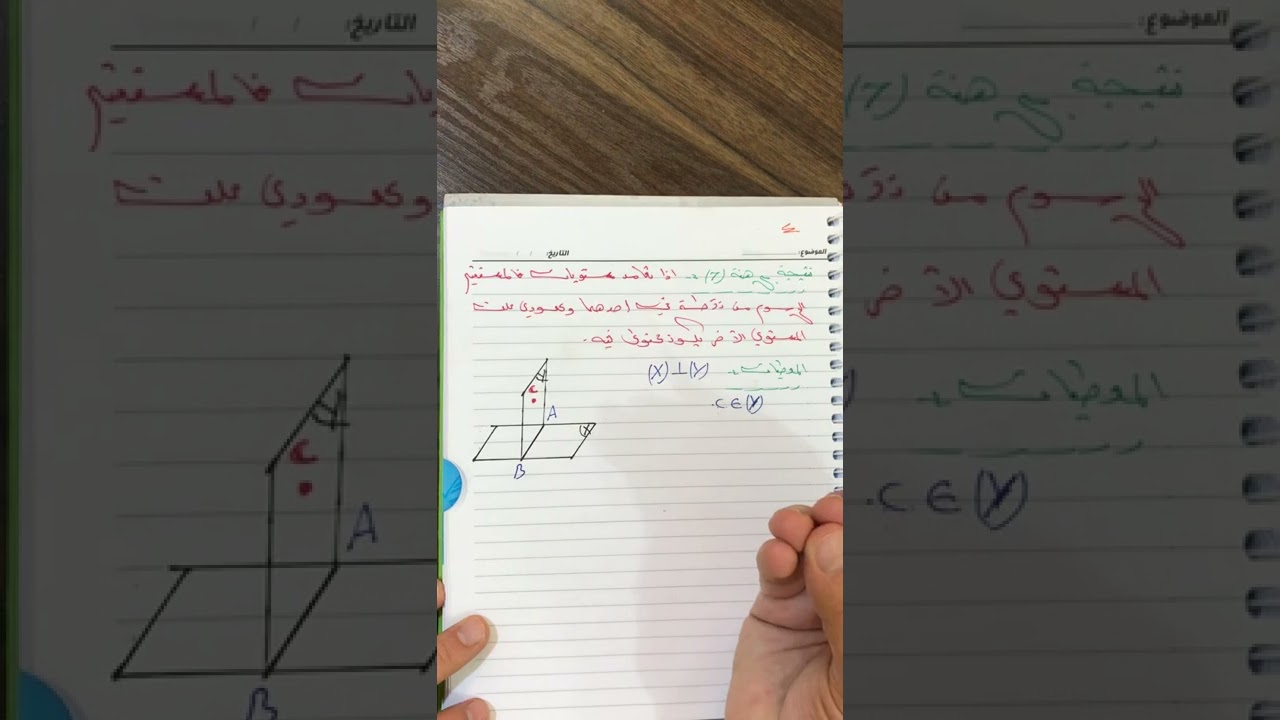 ٤
الموضوع: التاريخ: / /
نتيجة مبرهنة (7) :- اذا تعامد مستويان فالمستقيم
المرسوم من نقطة في احدهما وعمودي على
المستوي الآخر يكون محتوى فيه.
المعطيات :- (X)⊥(Y)
C∈(Y).
C
A
(X)
B